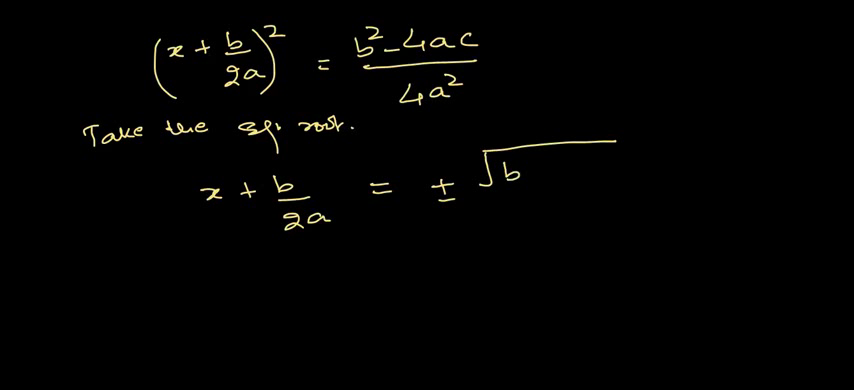 (x + b/2a)² = b² - 4ac / 4a²
Take the sq. root.
x + b/2a = ± √b